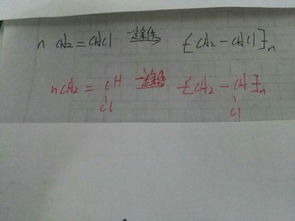 n CH2=CHCl 一定条件→ {CH2-CHCl}n
nCH2=CH 一定条件→ {CH2-CH}n
Cl Cl